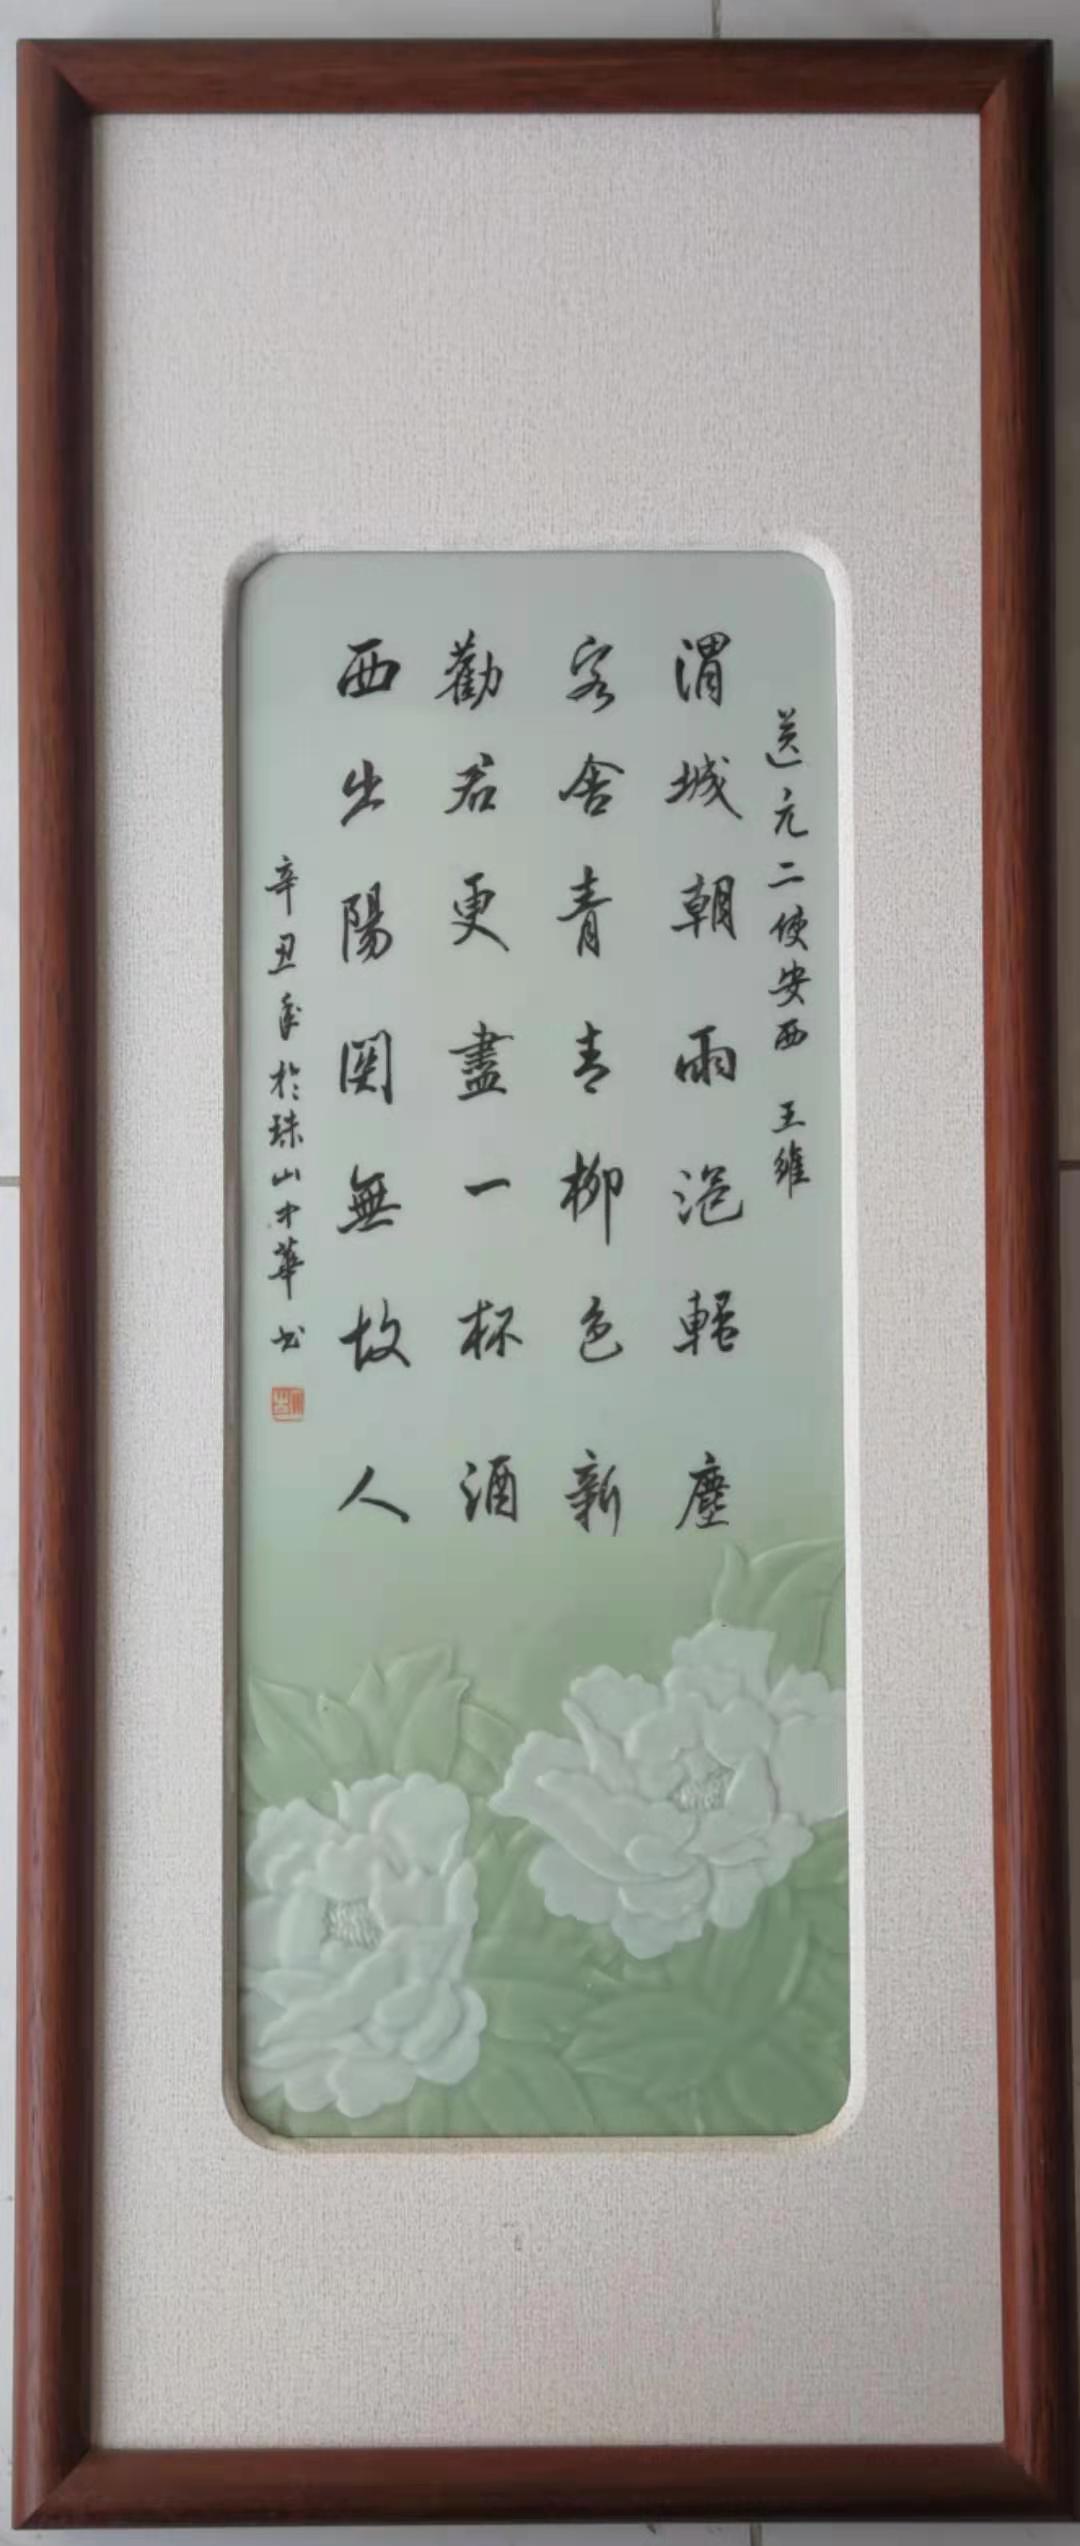 送元二使安西 王維
渭城朝雨浥輕塵
客舍青青柳色新
勸君更盡一杯酒
西出陽関無故人
辛丑年於珠山才華书